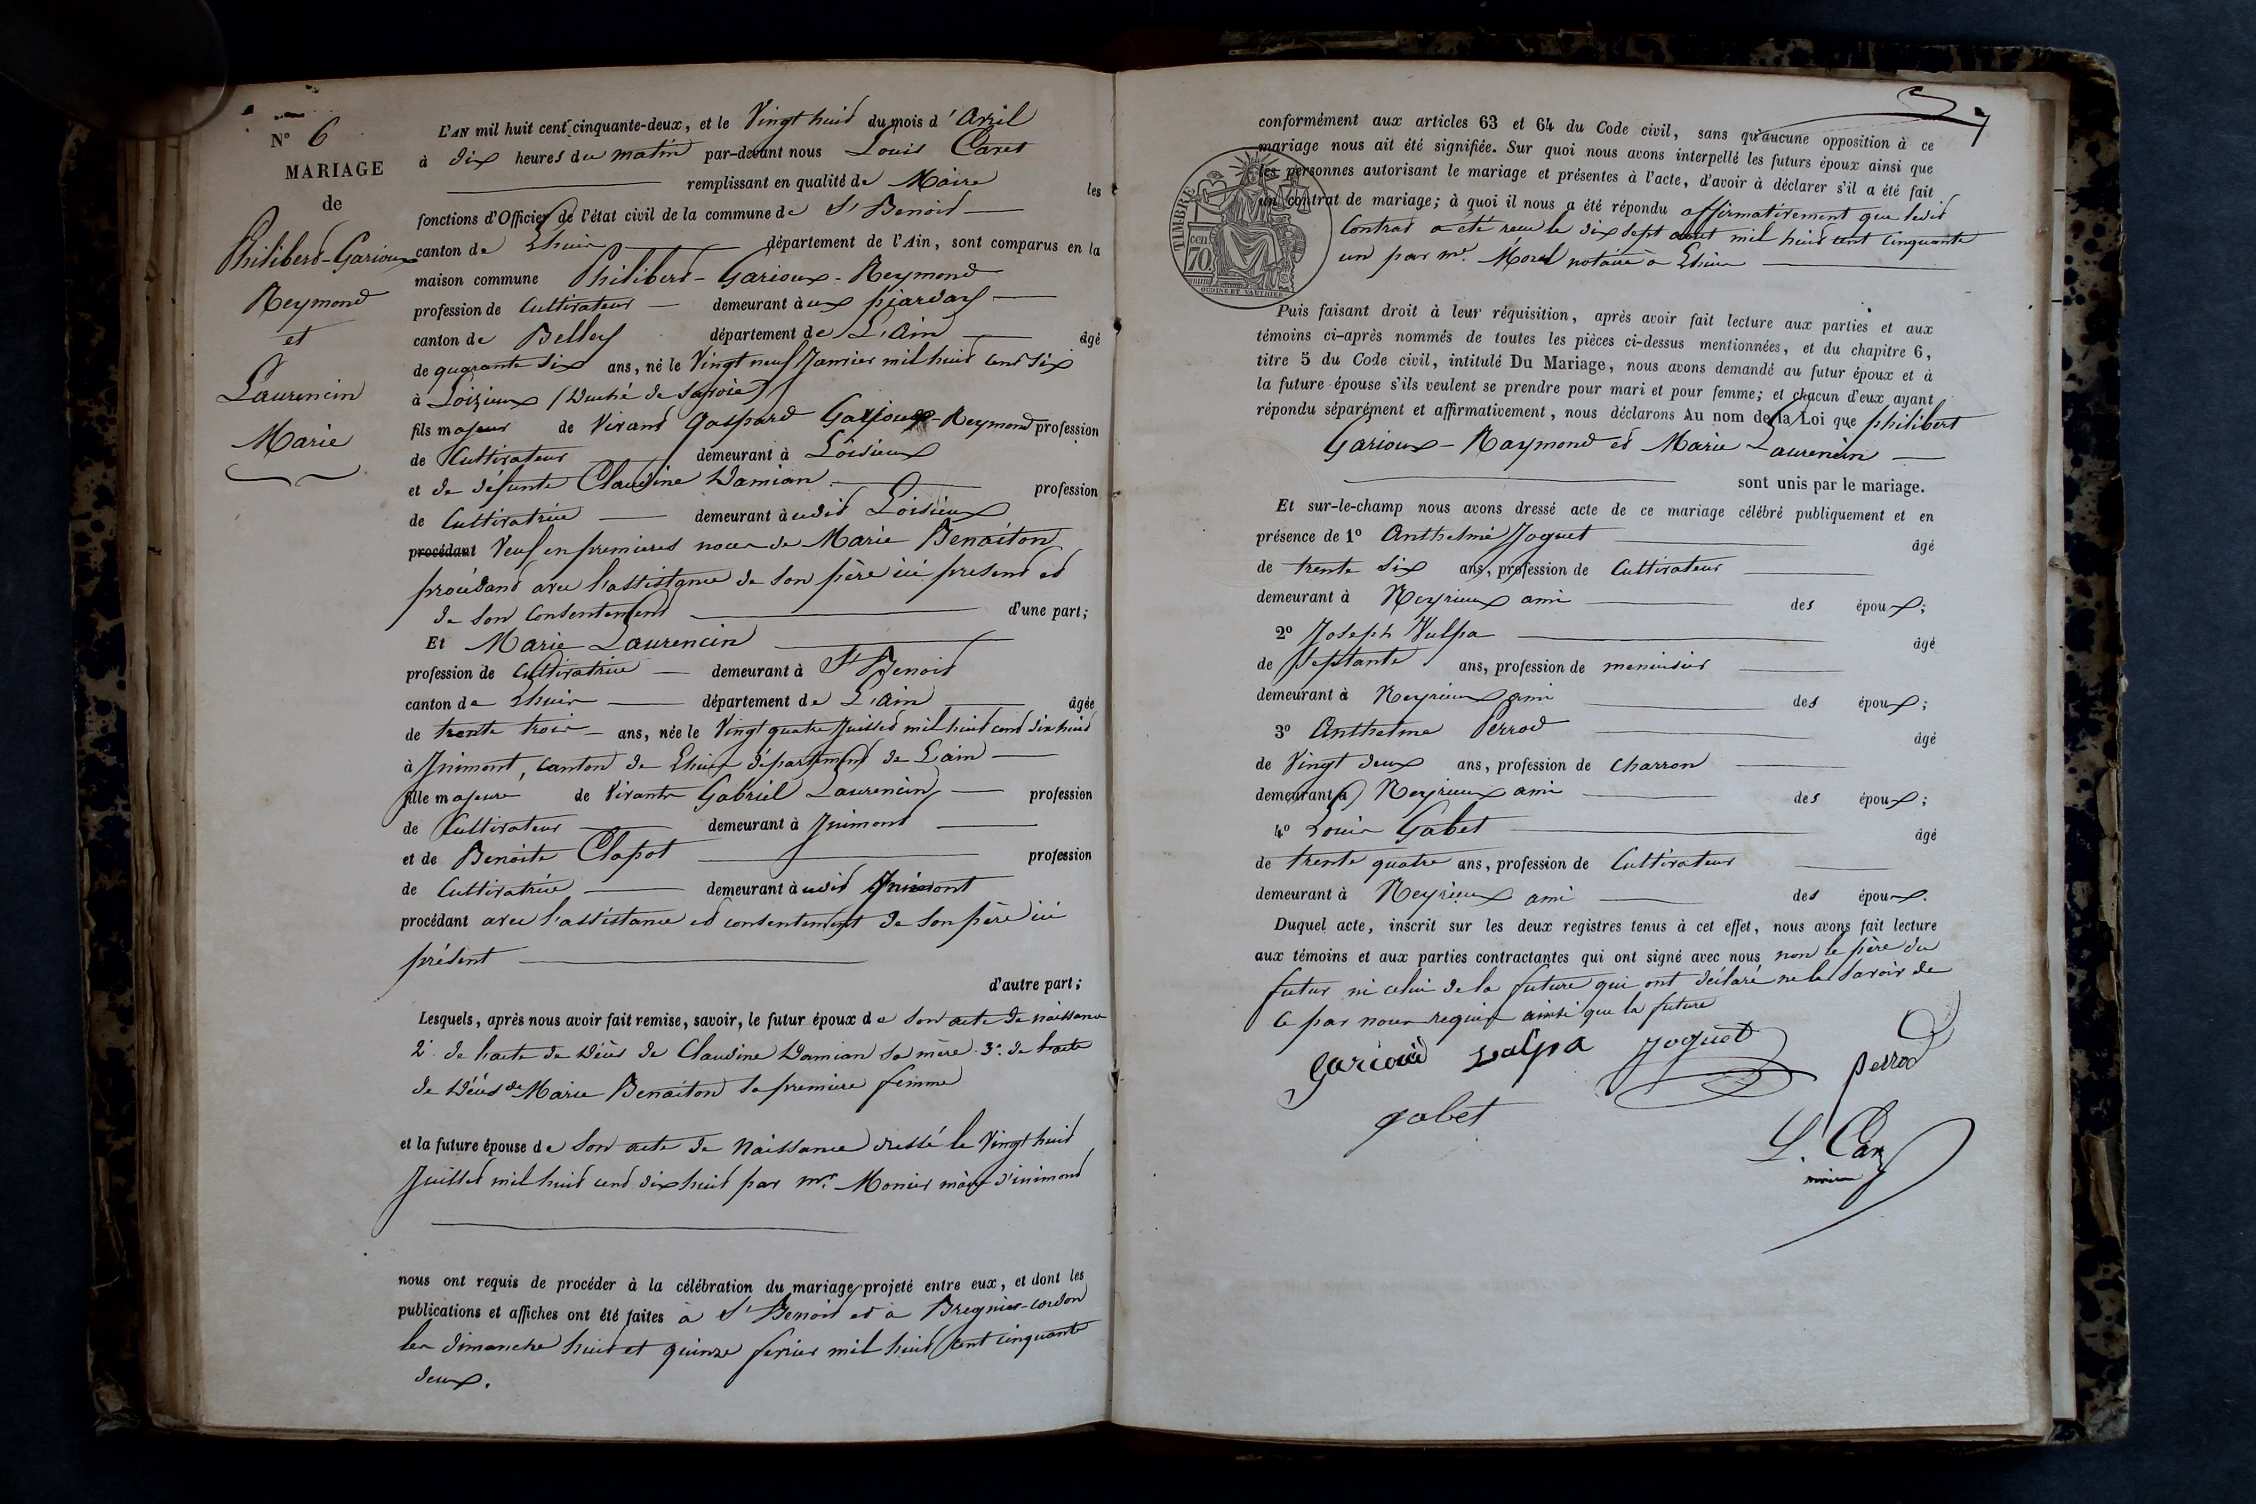 N° 6
MARIAGE
de
Philiberd-Garioux
Reymond
et
Laurencin
Marie
L'AN mil huit cent cinquante-deux, et le Vingt huid du mois d'Avril
à dix heures du matin par-devant nous Louis Caret
remplissant en qualité de Maire les
fonctions d'Officier de l'état civil de la commune de St Benoid
canton de Lhuis département de l'Ain, sont comparus en la
maison commune Philiberd-Garioux-Reymond
profession de Cultivateur demeurant à
canton de Belley département de L'Ain âgé
de quarante six ans, né le Vingt neuf Janvier mil huid cend six
à Loizieux (Duché de Savoie)
fils majeur de Vivand Gaspard Garioux-Reymond profession
de Cultivateur demeurant à Loisieux
et de défunte Claudine Damian profession
de Cultivatrice demeurant à udid Loisieux
procédant Veuf en premieres noces de Marie Benoiton
procédand avec l'assistance de son père ici présend ed
de son consentement d'une part;
Et Marie Laurencin
profession de Cultivatrice demeurant à St Benoid
canton de Lhuis département de L'ain âgée
de trente trois ans, née le Vingt quatre Juilled mil huid cend dix huid
à Inimont, canton de Lhuis département de L'ain
fille majeure de Vivante Gabriel Laurencin profession
de Cultivateur demeurant à Inimont
et de Benoite Clapot profession
de Cultivatrice demeurant à udid Inimont
procédant avec l'assistance ed consentement de son père ici
présent
d'autre part;
Lesquels, après nous avoir fait remise, savoir, le futur époux de son acte de naissance
2° de l'acte de décès de Claudine Damian sa mère 3° de l'acte
de décès de Marie Benoiton sa premiere femme
et la future épouse de son acte de Naissance dressé le Vingt huid
Juilled mil huid cend dix huid par mr. Monier maire d'inimond
nous ont requis de procéder à la célébration du mariage projeté entre eux, et dont les
publications et affiches ont été faites à St Benoid ed à Bregnier-cordon
les dimanche huid et quinze fevrier mil huid cent cinquante
deux.
conformément aux articles 63 et 64 du Code civil, sans qu'aucune opposition à ce
mariage nous ait été signifiée. Sur quoi nous avons interpellé les futurs époux ainsi que
les personnes autorisant le mariage et présentes à l'acte, d'avoir à déclarer s'il a été fait
un contrat de mariage; à quoi il nous a été répondu affirmativement que ledid
Contrad a été recu le dix sept aout mil huid cent cinquante
un par mr. Morel notaire a Lhuis
TIMBRE
cen
70
Puis faisant droit à leur réquisition, après avoir fait lecture aux parties et aux
témoins ci-après nommés de toutes les pièces ci-dessus mentionnées, et du chapitre 6,
titre 5 du Code civil, intitulé Du Mariage, nous avons demandé au futur époux et à
la future épouse s'ils veulent se prendre pour mari et pour femme; et chacun d'eux ayant
répondu séparément et affirmativement, nous déclarons Au nom de la Loi que philibert
Garioux-Raymond ed Marie Laurencin
sont unis par le mariage.
Et sur-le-champ nous avons dressé acte de ce mariage célébré publiquement et en
présence de 1° Anthelme Joguet âgé
de trente six ans, profession de Cultivateur
demeurant à Neyrieux ami des époux;
2° Joseph Vulpa âgé
de Septante ans, profession de menuisier
demeurant à Neyrieux ami des époux;
3° Anthelme Perrod âgé
de Vingt deux ans, profession de Charron
demeurant à Neyrieux ami des époux;
4° Louis Gabet âgé
de trente quatre ans, profession de Cultivateur
demeurant à Neyrieux ami des époux.
Duquel acte, inscrit sur les deux registres tenus à cet effet, nous avons fait lecture
aux témoins et aux parties contractantes qui ont signé avec nous non le père du
futur ni celui de la future qui ont déclaré ne le savoir de
ce par nous requis ainsi que la future
Joguet
perrod
gabet